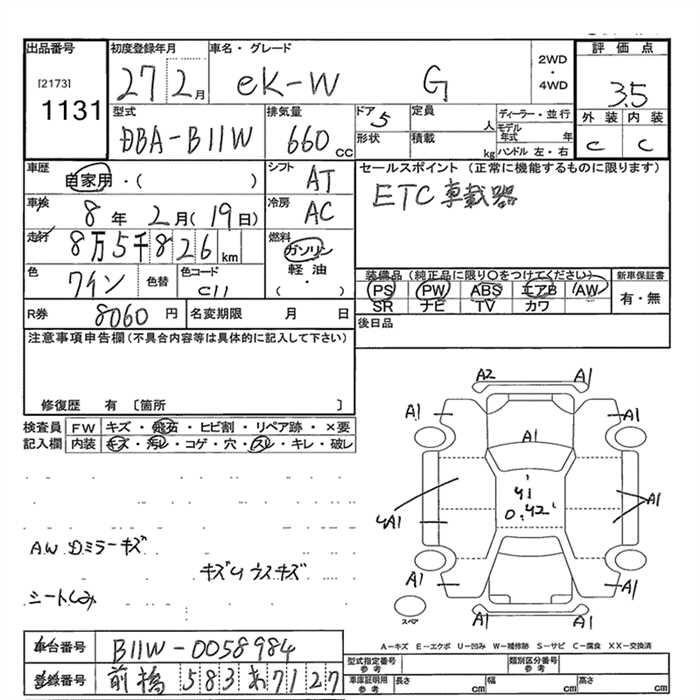 出品番号 初度登録年月 車名・グレード 2WD・4WD 評価点
[2173] 1131 27 2月 eK-W G 3.5
型式 排気量 ドア 5 定員 人 ディーラー・並行 外装 内装
DBA-B11W 660cc 形状 積載 kg モデル年式 年 ハンドル 左・右 C C
車歴 自家用・( ) シフト AT セールスポイント (正常に機能するものに限ります)
車検 8年 2月(19日) 冷房 AC ETC車載器
走行 8万5千826km 燃料 ガソリン
軽油・( )
色 ワイン 色替 色コード C11 装備品(純正品に限り○をつけてください) 新車保証書
PS PW ABS エアB AW 有・無
SR ナビ TV カワ
R券 8060円 名変期限 月 日 後日品
注意事項申告欄(不具合内容等は具体的に記入して下さい)
修復歴 有 〔箇所 〕
検査員 FW キズ・飛石・ヒビ割・リペア跡・×要
記入欄 内装 キズ・汚レ・コゲ・穴・スレ・キレ・破レ
A2 A1
A1 A1
A1
41
0.42
4A1 A1
A1 A1
A1 A1
スペア
AW Dミラーキズ
キズU ウスキズ
シートしみ
A-キズ E-エクボ U-凹み W-補修跡 S-サビ C-腐食 XX-交換済
車台番号 B11W-0058984 型式指定番号 参考 類別区分番号 参考
登録番号 前橋 583 あ 7127 車庫証明用 参考 長さ cm 幅 cm 高さ cm